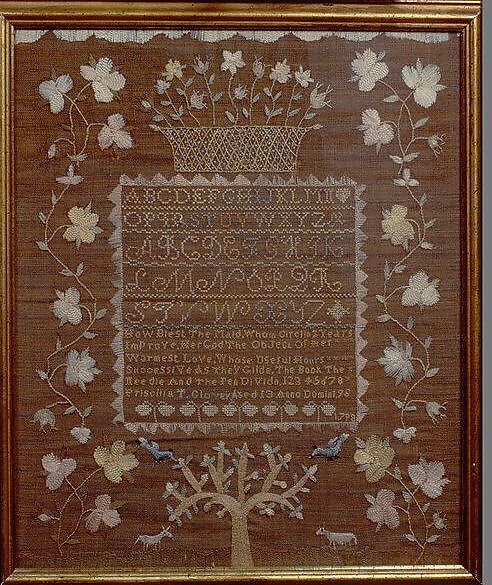 ABCDEFGHIKLMN
OPQRSTUVWXYZ&
ABCDEFGHIK
LMNOPQR
STVWXYZ
How Blest The Maid, Whom Circling Years
Improve, Her God The Object of Her
Warmest Love, Whose Useful Hours
Successive As They Glide, The Book The
Needle And The Pen Divide, 12345678
Priscilla T. Aged 13 Anno Domini